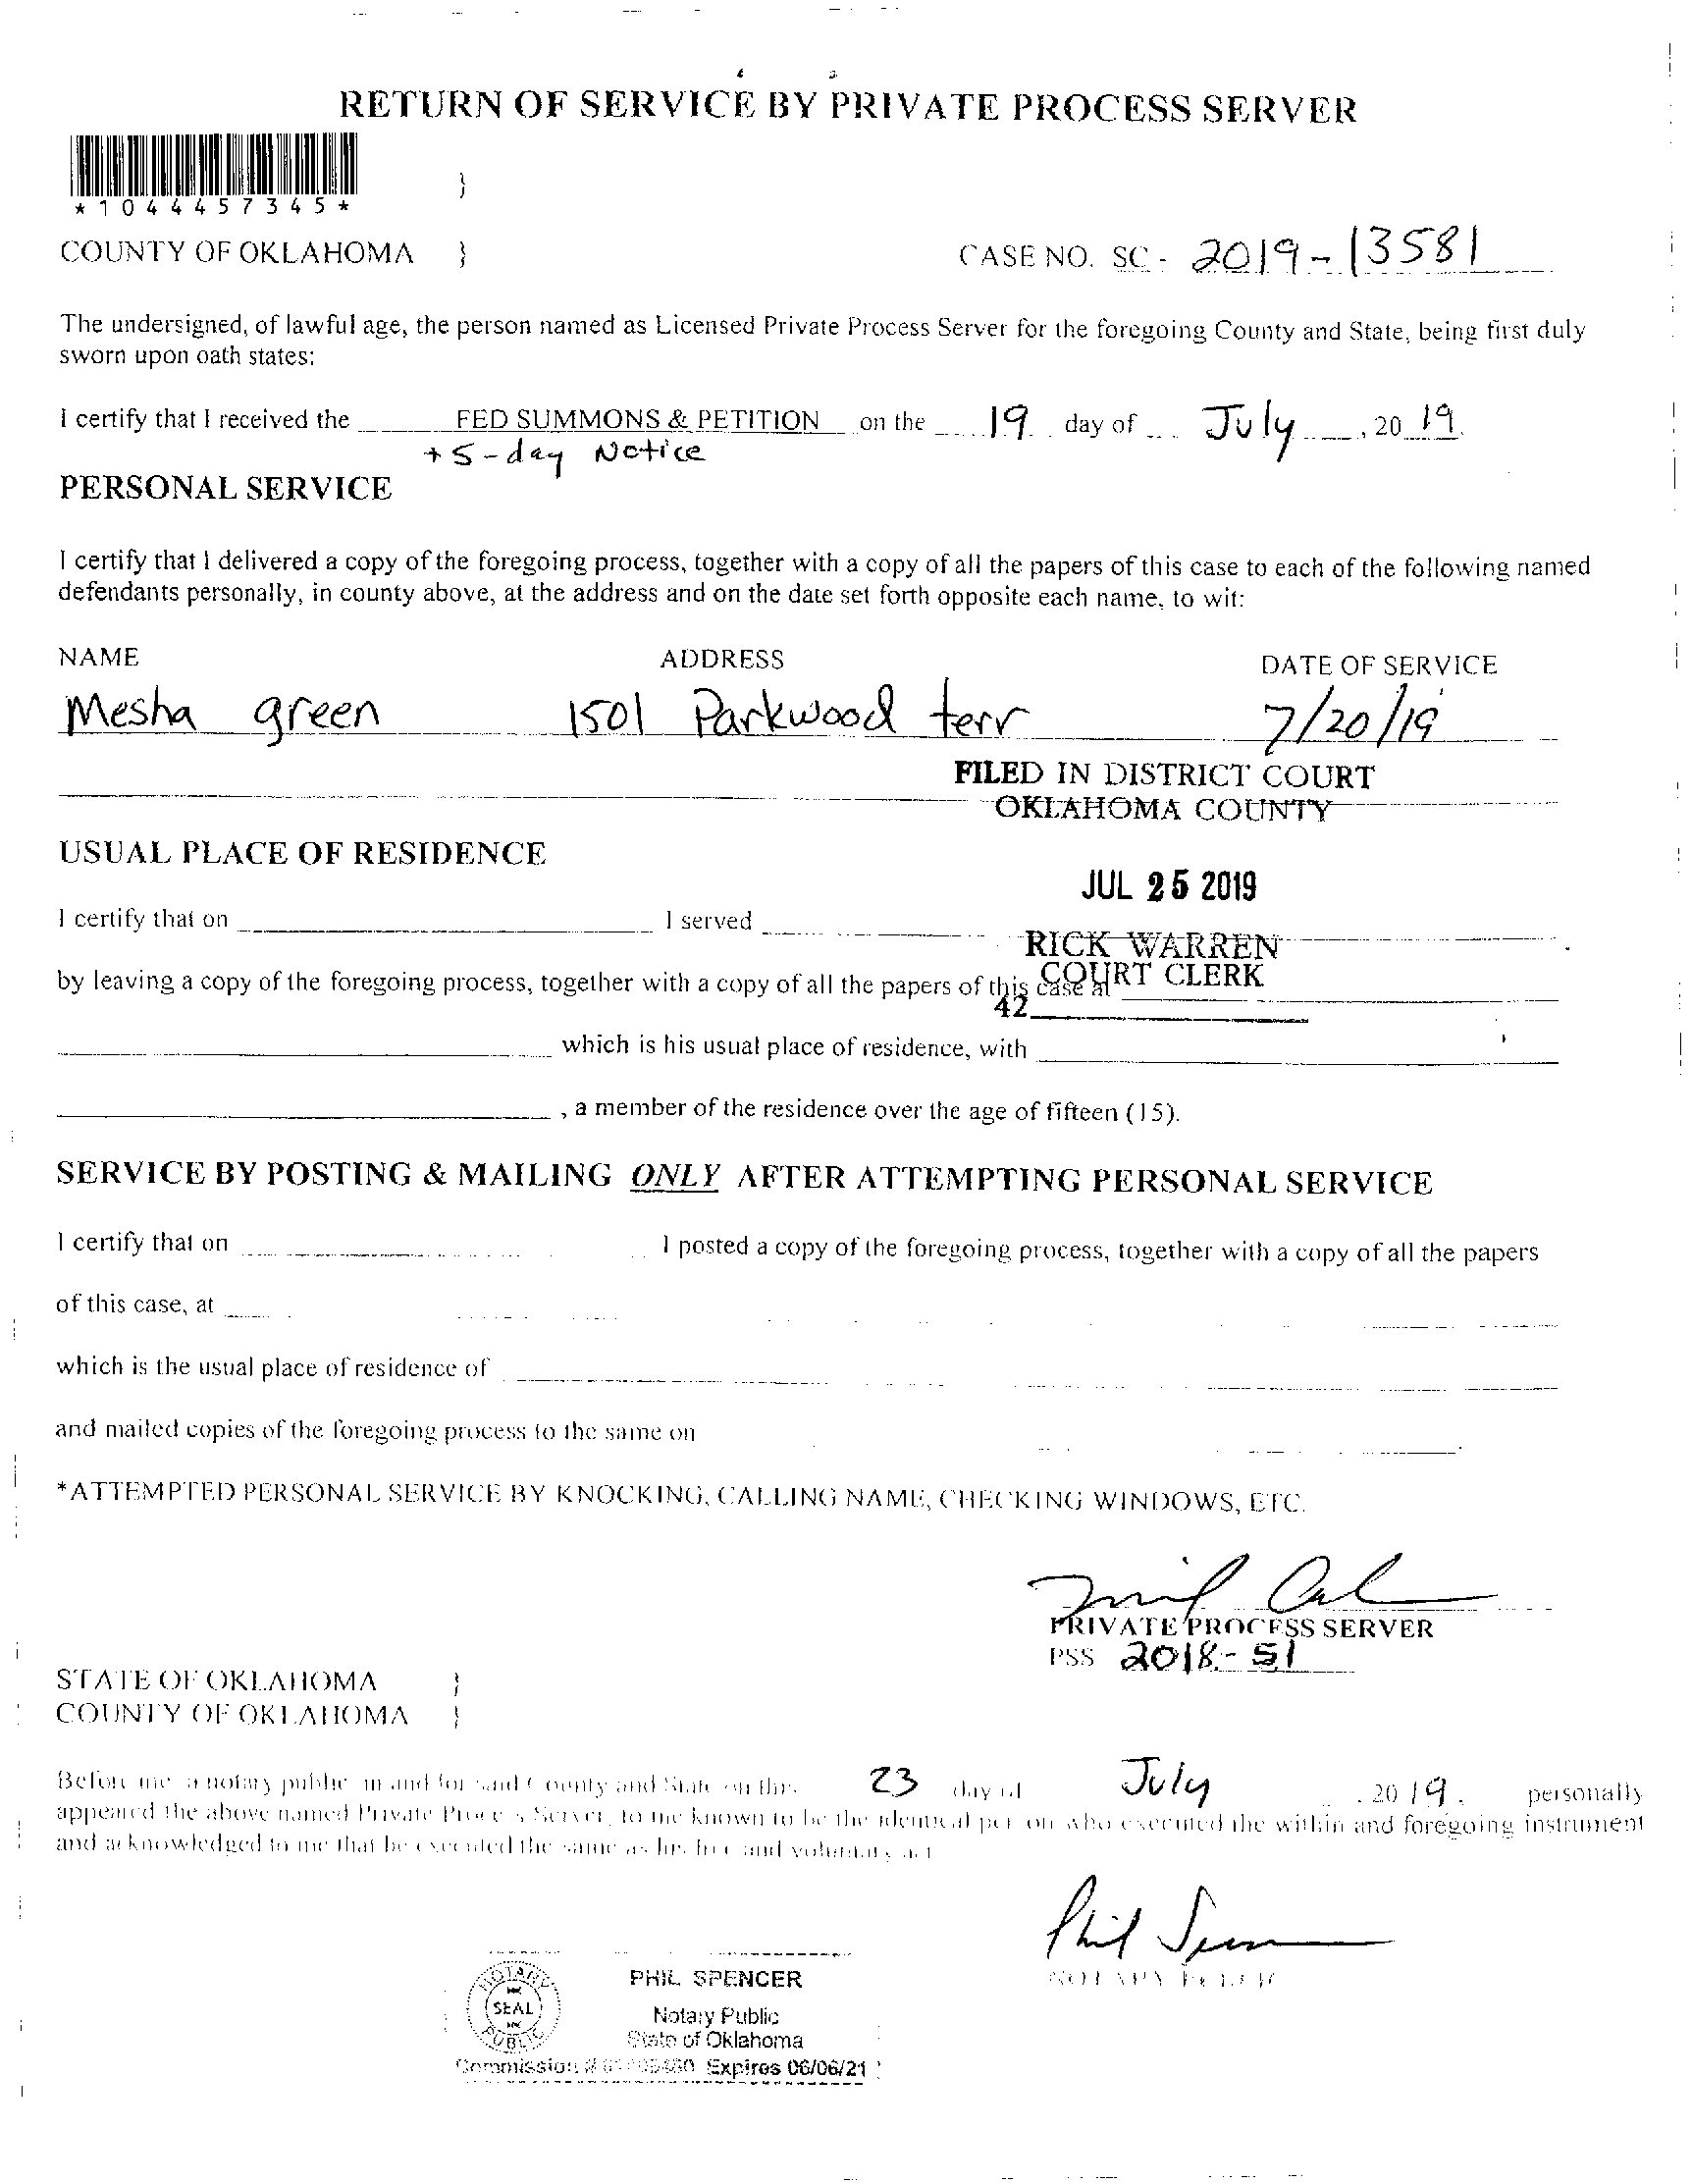 RETURN OF SERVICE BY PRIVATE PROCESS SERVER
*1044457345*
}
COUNTY OF OKLAHOMA } CASE NO. SC - 2019-13581
The undersigned, of lawful age, the person named as Licensed Private Process Server for the foregoing County and State, being first duly
sworn upon oath states:
I certify that I received the FED SUMMONS & PETITION on the 19 day of July, 20 19.
+ 5-day Notice
PERSONAL SERVICE
I certify that I delivered a copy of the foregoing process, together with a copy of all the papers of this case to each of the following named
defendants personally, in county above, at the address and on the date set forth opposite each name, to wit:
NAME ADDRESS DATE OF SERVICE
Mesha green 1501 Parkwood terr 7/20/19
FILED IN DISTRICT COURT
OKLAHOMA COUNTY
USUAL PLACE OF RESIDENCE
JUL 25 2019
I certify that on I served
RICK WARREN
COURT CLERK
by leaving a copy of the foregoing process, together with a copy of all the papers of this case at
42
which is his usual place of residence, with
, a member of the residence over the age of fifteen (15).
SERVICE BY POSTING & MAILING ONLY AFTER ATTEMPTING PERSONAL SERVICE
I certify that on I posted a copy of the foregoing process, together with a copy of all the papers
of this case, at
which is the usual place of residence of
and mailed copies of the foregoing process to the same on .
*ATTEMPTED PERSONAL SERVICE BY KNOCKING, CALLING NAME, CHECKING WINDOWS, ETC.
PRIVATE PROCESS SERVER
PSS 2018-51
STATE OF OKLAHOMA }
COUNTY OF OKLAHOMA }
Before me a notary public in and for said County and State on this 23 day of July, 20 19. personally
appeared the above named Private Process Server, to me known to be the identical person who executed the within and foregoing instrument
and acknowledged to me that he executed the same as his free and voluntary act
Phil
NOTARY PUBLIC
NOTARY
SEAL
PUBLIC
PHIL SPENCER
Notary Public
State of Oklahoma
Commission # Expires 06/06/21